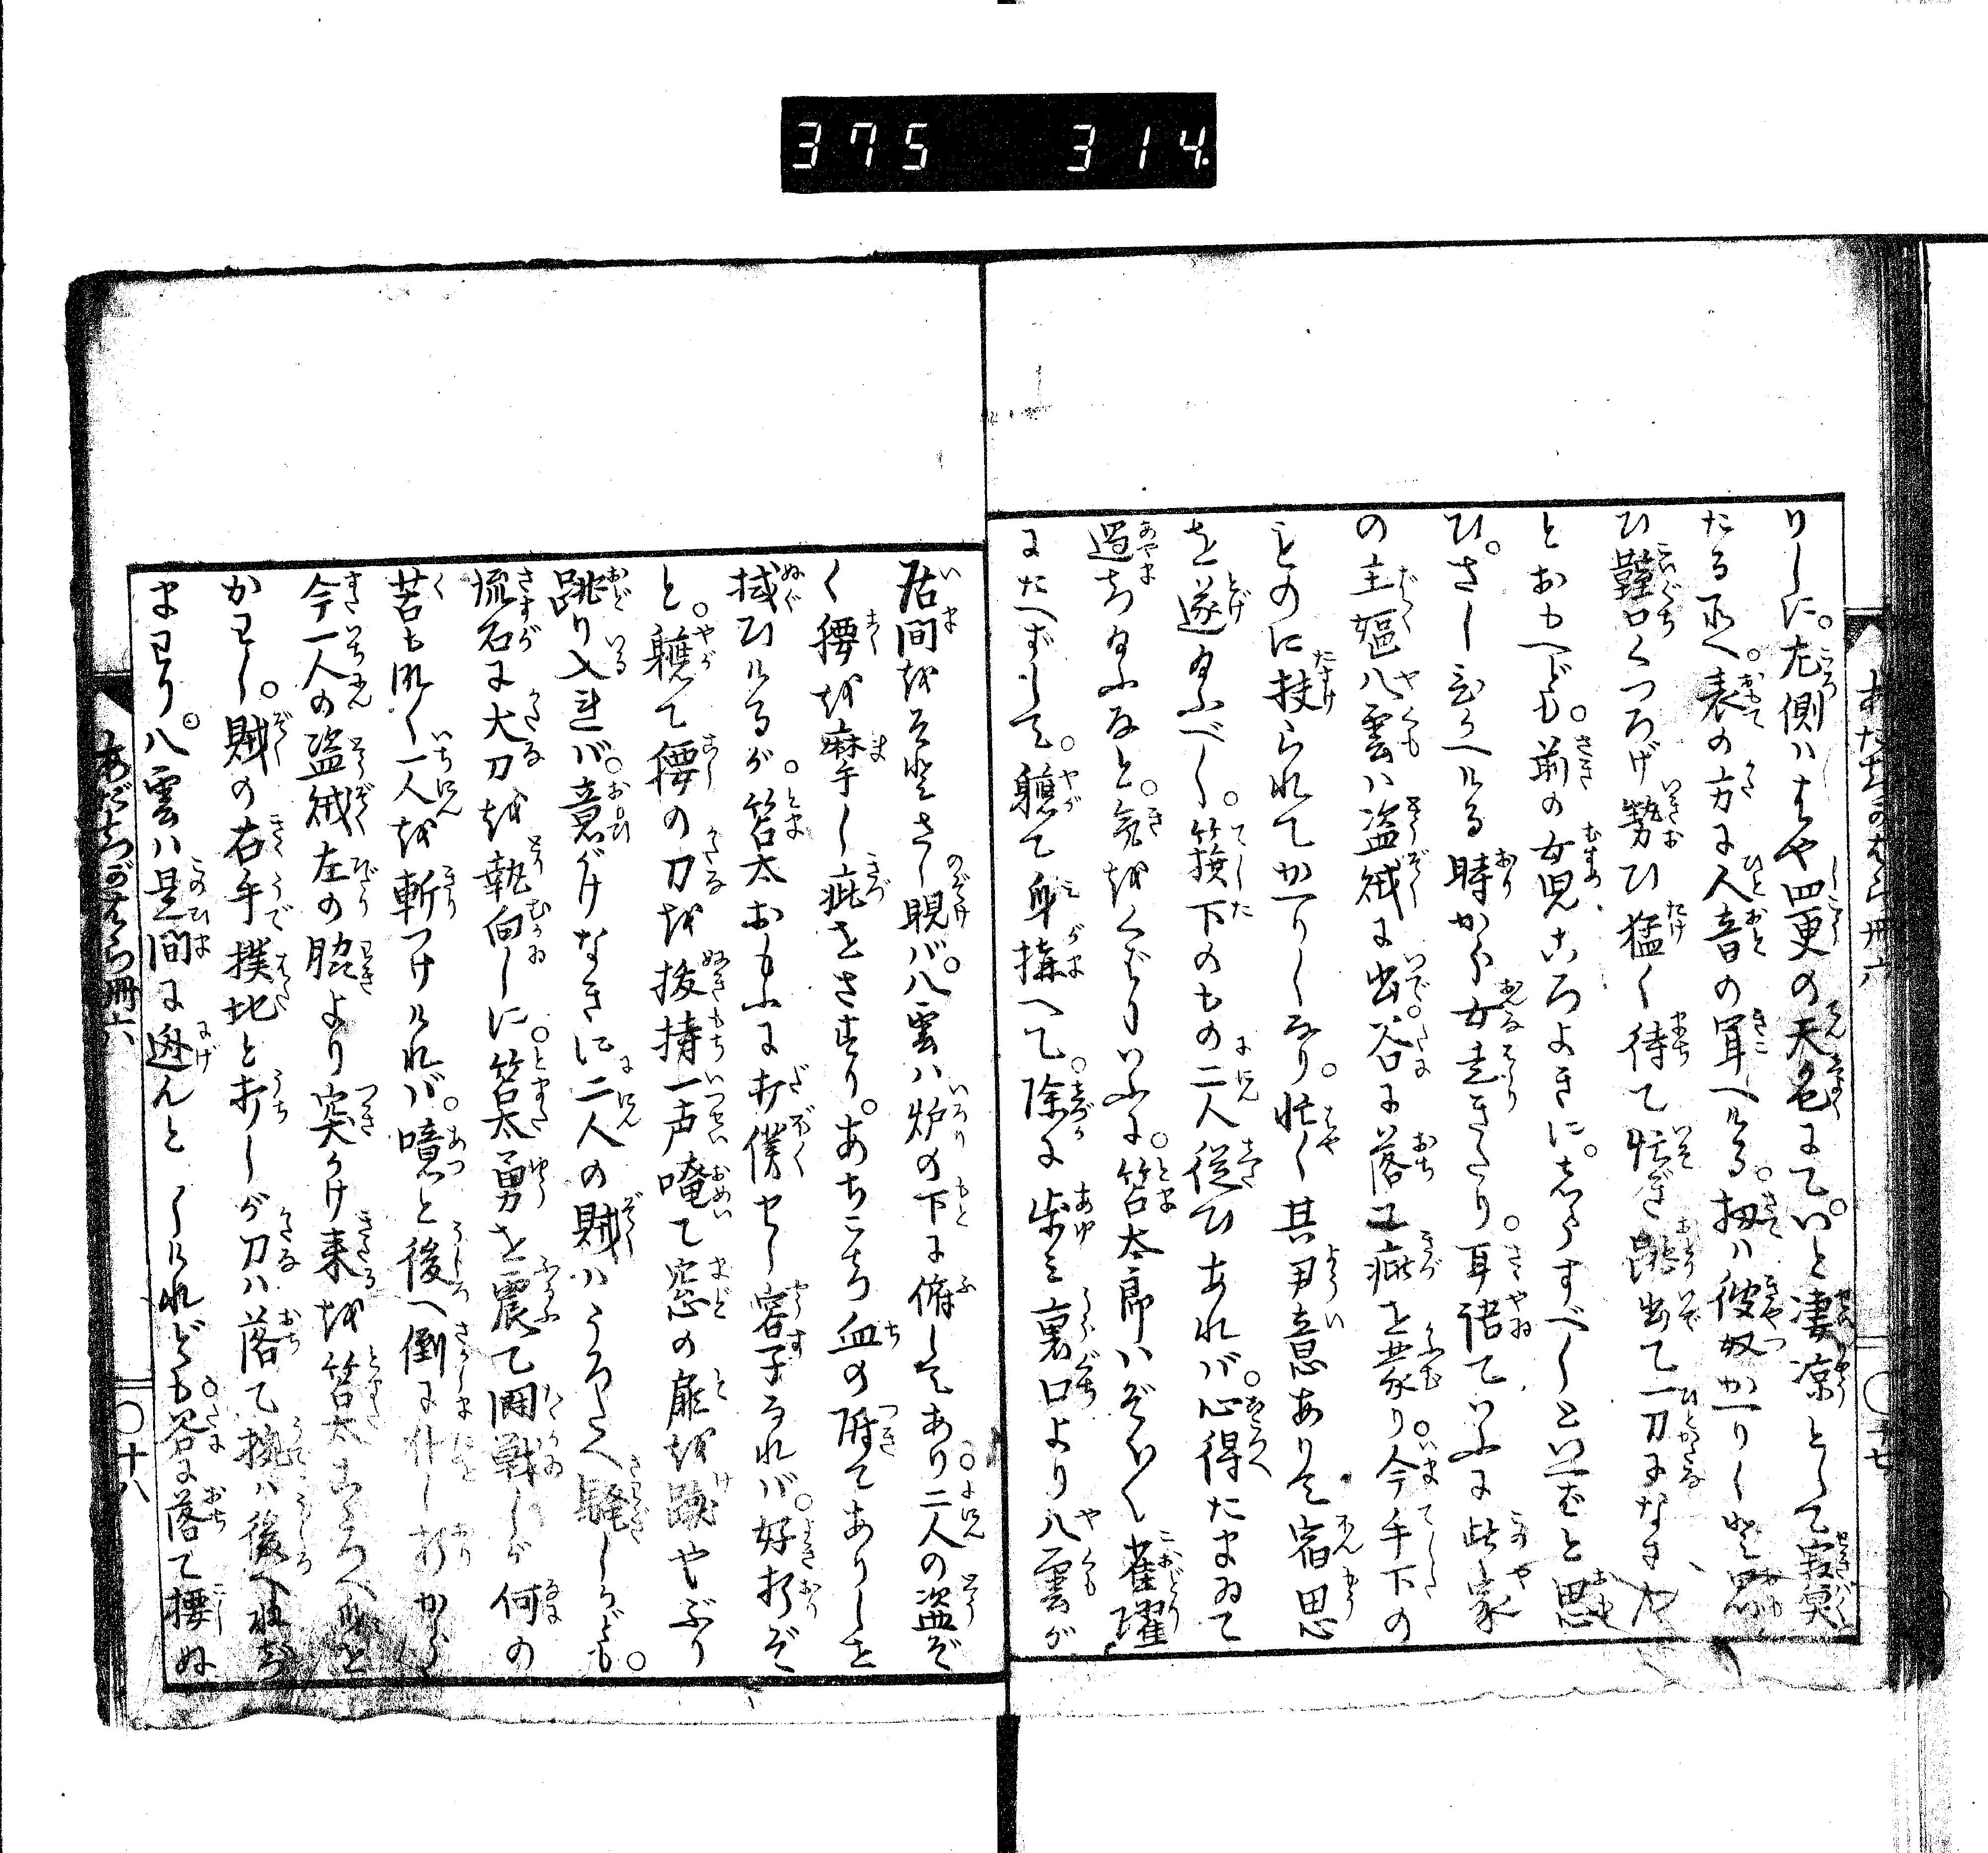 375 314
りしに。尤側ハはや四更の天色にて。いと凄凉として寂寞
たる所へ。表の方に人音の聞へける。扨ハ彼奴かへりしと思
ひ鞘口くつろげ勢ひ猛く待て忙ぎ跳出て一刀になさん
とおもへども。前の女児こゝろよきに。あらすべしといへばと思
ひ。さしひかへける時から女走きたり。耳語ていふに此家
の主嫗八雲ハ盗賊に出。谷に落て疵を蒙り。今手下の
ものに扶られてかへりしなり。忙く其用意ありて宿思
を遂給ふべし。箕下のもの二人従ひあれバ。心得たまゐて
過ち給ふなと。気をくばりいふに。笘太郎ハぞく〳〵雀躍
にたへずして。軈て身搆へて。除に歩み裏口より八雲が
居間をさしてさし覗バ。八雲ハ炉の下に俯してあり二人の盗ぞ
く腰を麻手し疵をさすり。あちこち血の附てありしを
拭ひけるが。笘太おもふに打僕せし容子なれバ。好折ぞ
と。軈て腰の刀を抜持一声唵て窓の扉を蹴やぶり
跳り入れバ。意がけなきに二人の賊ハうろたへ騒しかども。
流石に大刀を執向しに。笘太勇を震て闘戦しが何の
苦も無く一人を斬つけけれバ。噫と後へ倒に仆し折から
今一人の盗賊左の脇より突かけ来を笘太こゝろへ身を
かわし。賊の右手撲地と打しが刀ハ落て腕ハ後へねぢ
まわり。八雲ハ是間に迯んとしけれども谷に落て腰ぬ
十七
あだちがはら 冊六
十八